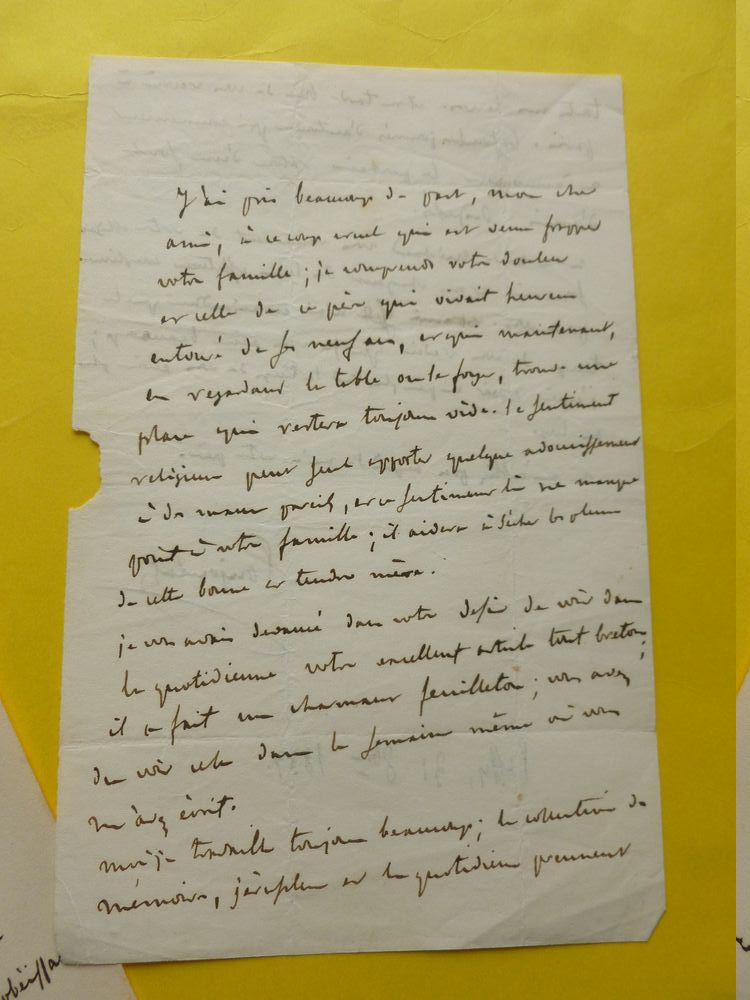 J'ai pris beaucoup de part, mon cher
ami, à ce coup cruel qui est venu frapper
votre famille ; je comprends votre douleur
et celle de ce père qui vivait heureux
entouré de ses neuf , et qui maintenant,
en regardant la table ou le foyer, trouve une
place qui restera toujours vide. le sentiment
religieux peut seul apporter quelque adoucissement
à des maux pareils, et ce sentiment là ne manque
point à votre famille ; il aidera à sécher les pleurs
de cette bonne et tendre mère.
je vous avais devancé dans votre desir de voir dans
la quotidienne votre excellent article tout breton ;
il a fait un charmant feuilleton ; vous avez
du voir cela dans la semaine même où vous
m'avez écrit.
moi je travaille toujours beaucoup ; la collection de
mémoires, jérusalem et la quotidienne prennent
obéissa